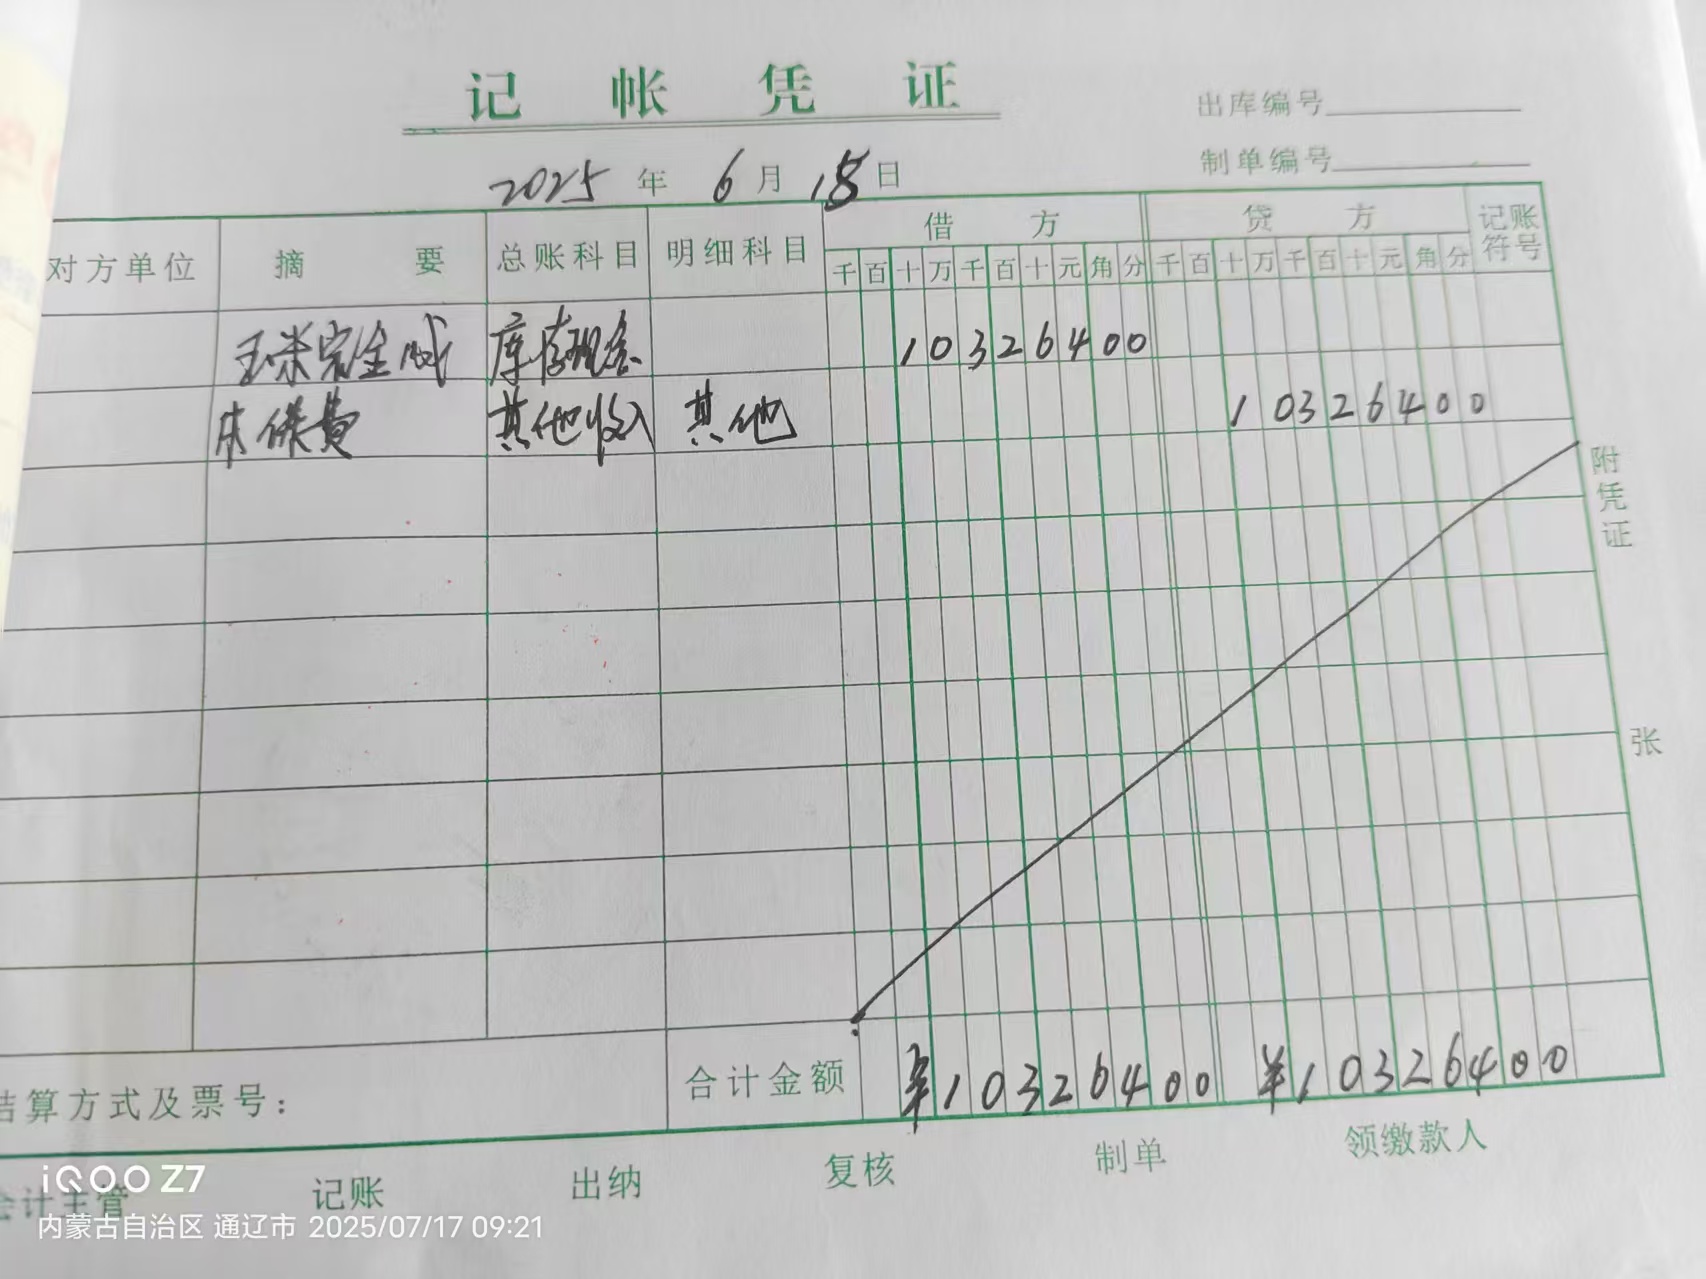 记 帐 凭 证
出库编号
制单编号
2025 年 6 月 18 日
对方单位 摘 要 总账科目 明细科目 借 方 贷 方 记账符号
千 百 十 万 千 百 十 元 角 分 千 百 十 万 千 百 十 元 角 分
玉米完全成 库存现金 10326400
本保费 其他收入 其他 10326400
附凭证
张
结算方式及票号： 合计金额 ¥10326400 ¥10326400
会计主管 记账 出纳 复核 制单 领缴款人
iQOO Z7
内蒙古自治区 通辽市 2025/07/17 09:21